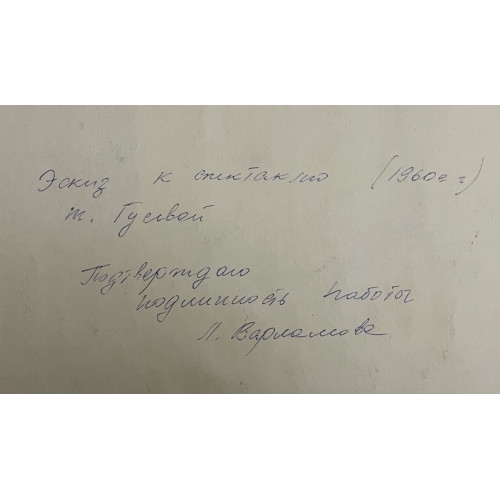 Эскиз к спектаклю (1960е г)
т. Гусевой
Подтверждаю
подлинность работы
Л. Варламова